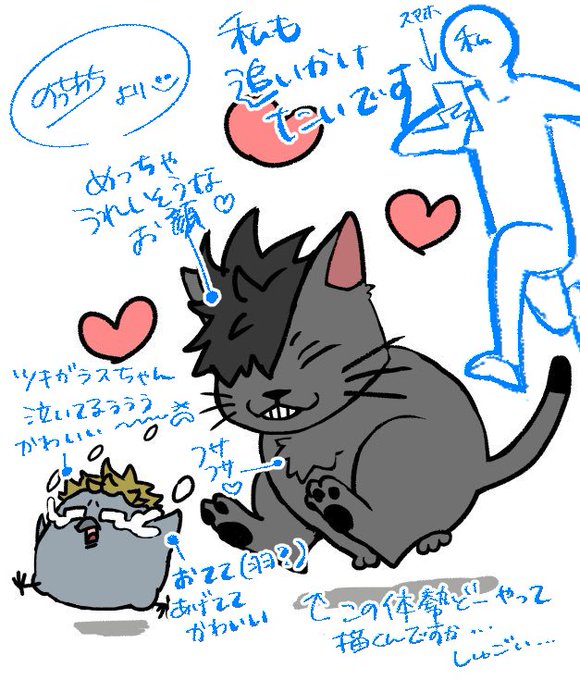 私も
追いかけ
たいです
スマホ
私
より
めっちゃ
うれしそうな
お顔♡
ツキガラスちゃん
泣いてるぅぅぅ
かわいい〜〜
フサ
フサ
♡
おてて(羽?)
あげてて
かわいい
↑この体勢どーやって
描くんですか…
しゅごい…